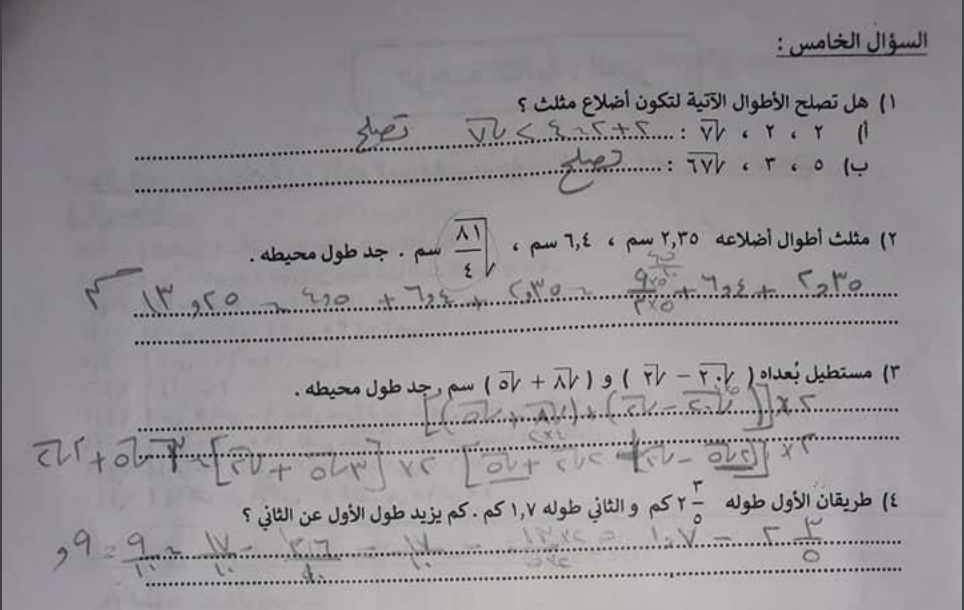 السؤال الخامس :
١) هل تصلح الأطوال الآتية لتكون أضلاع مثلث ؟
أ) ٢ ، ٢ ، √٧ : ٢+٢ = ٤ > √٧ تصلح
ب) ٥ ، ٣ ، √٦٧ : تصلح
٢) مثلث أطوال أضلاعه ٢,٣٥ سم ، ٦,٤ سم ، √(٨١/٤) سم . جد طول محيطه .
٢,٣٥ + ٦,٤ + (٩×٥)/(٢×٥) = ٢,٣٥ + ٦,٤ + ٤,٥ = ١٣,٢٥ سم
٣) مستطيل بُعداه ( √٢٠ − √٢ ) و ( √٨ + √٥ ) سم . جد طول محيطه .
٢×[(√٢٠ − √٢) + (√٨ + √٥)]
٢×[(٢√٥ − √٢) + ٢√٢ + √٥] ٢×[٣√٥ + √٢] = ٦√٥ + ٢√٢
٤) طريقان الأول طوله ٢ ٣/٥ كم و الثاني طوله ١,٧ كم . كم يزيد طول الأول عن الثاني ؟
٢ ٣/٥ − ١,٧ = − ١٧/١٠ = − ١٧/١٠ = ٩/١٠ = ٩,